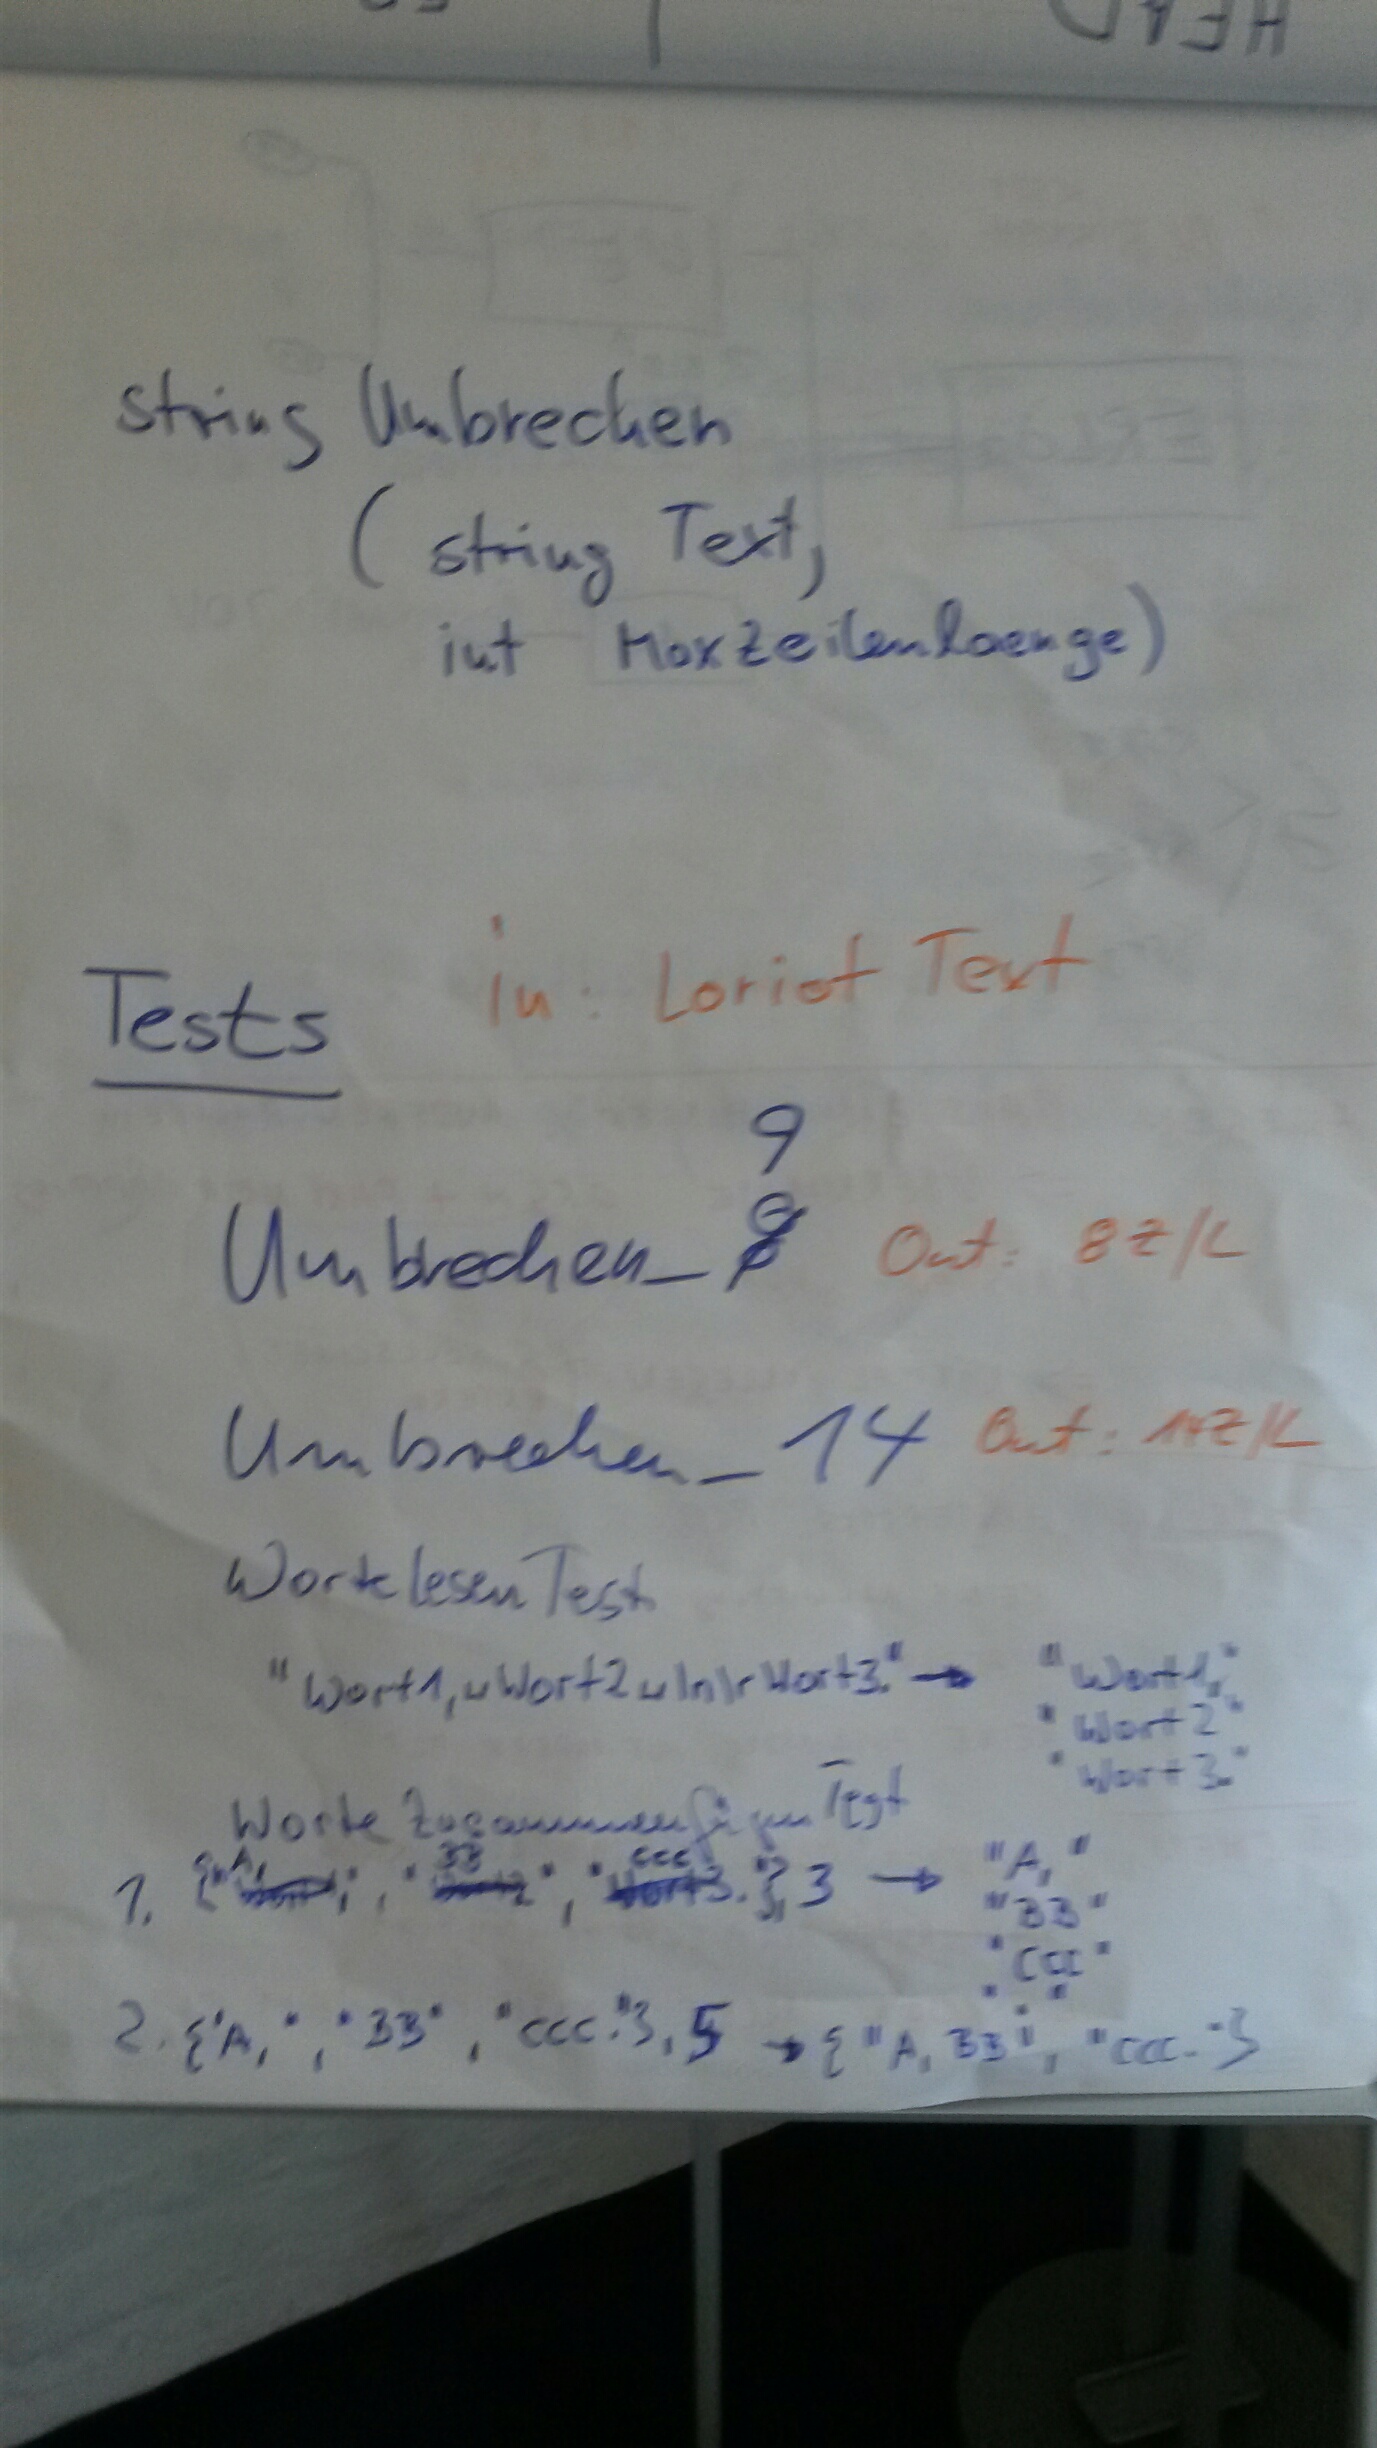 HEAD
string Umbrechen
( string Text,
int MaxZeilenlaenge)
Tests in: Loriot Text
9
Umbrechen_ Out: 8Z/L
Umbrechen_14 Out: 14Z/L
WortelesenTest
"Wort1,␣Wort2␣\n\rWort3." → "Wort1,"
"Wort2"
"Wort3."
WorteZusammenfügenTest
1. {"A,", "BB", "CCC."}, 3 → "A,"
"BB"
"CCC"
"."
2. {"A,", "BB", "CCC."}, 5 → {"A, BB", "CCC."}